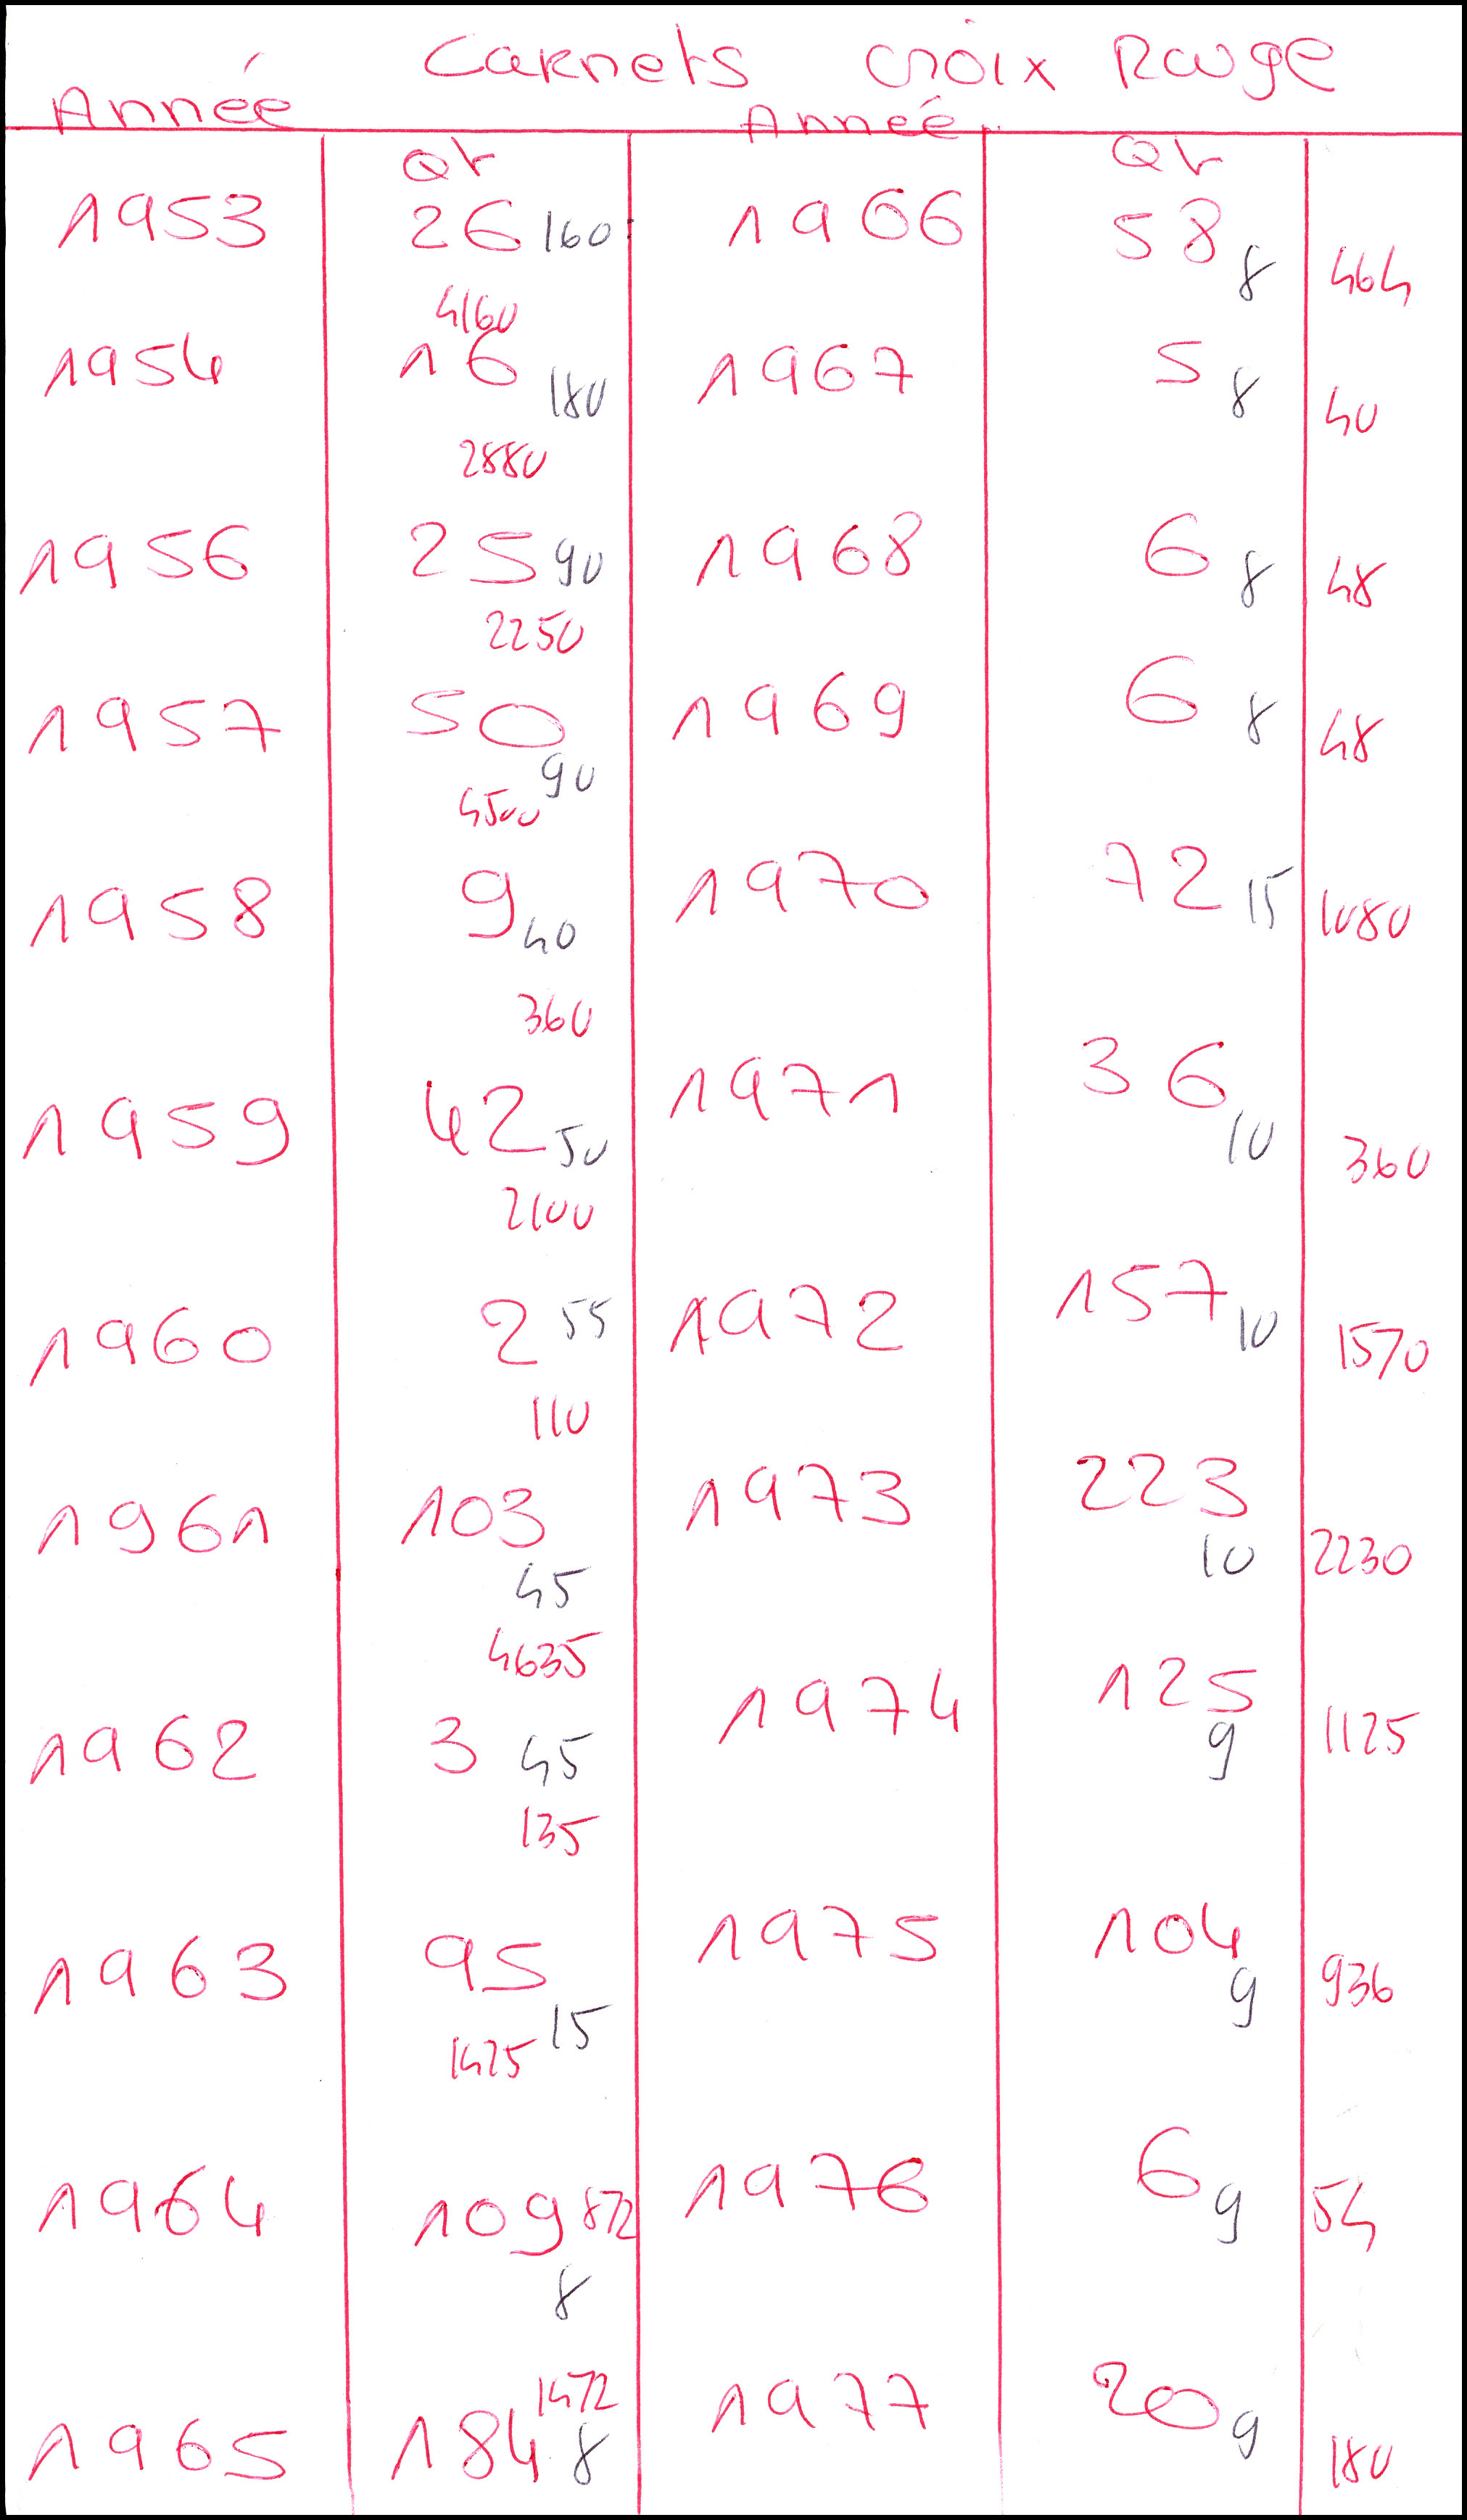 Carnets croix Rouge
Année Année
Qt Qt
1953 26 160 1966 58 8 464
4160
1954 16 180 1967 5 8 40
2880
1956 25 90 1968 6 8 48
2250
1957 50 90 1969 6 8 48
4500
1958 9 40 1970 72 15 1080
360
1959 42 50 1971 36 10 360
2100
1960 2 55 1972 157 10 1570
110
1961 103 45 1973 223 10 2230
4635
1962 3 45 1974 125 9 1125
135
1963 95 15 1975 104 9 936
1425
1964 109 872 1976 6 9 54
8
1472
1965 184 8 1977 20 9 180